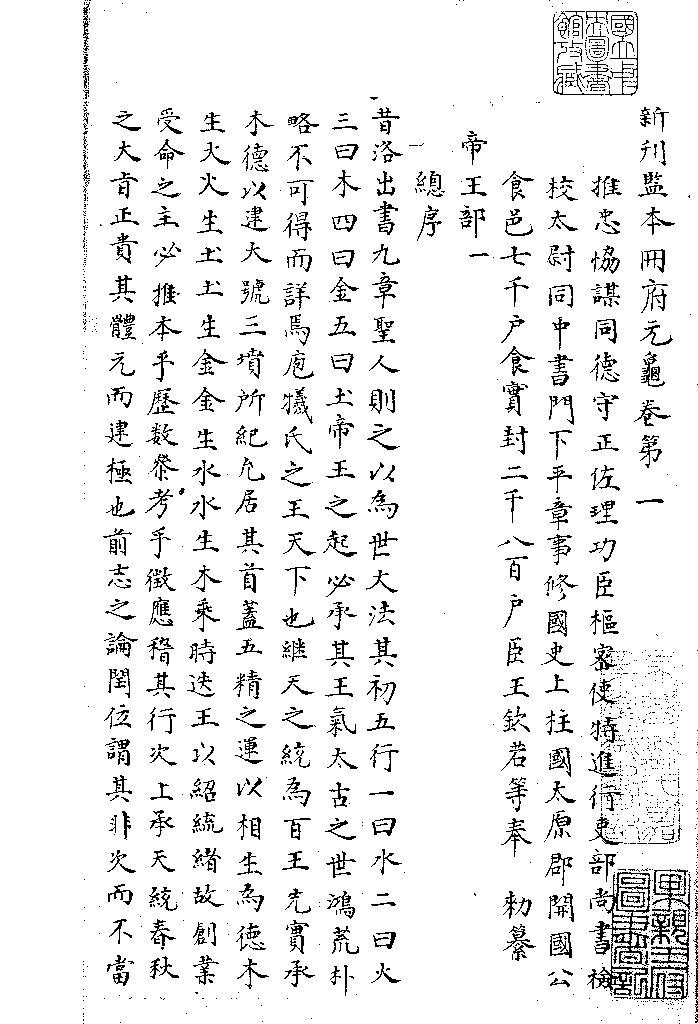 新刊監本冊府元龜卷第一
推忠協謀同德守正佐理功臣樞密使特進行吏部尚書檢
校太尉同中書門下平章事修國史上柱國太原郡開國公
食邑七千户食實封二千八百户臣王欽若等奉　勅纂
帝王部一
總序
昔洛出書九章聖人則之以為世大法其初五行一曰水二曰火
三曰木四曰金五曰土帝王之起必承其王氣太古之世鴻荒朴
略不可得而詳焉庖犧氏之王天下也継天之統為百王先實承
木德以建大號三墳所紀允居其首蓋五精之運以相生為德木
生火火生土土生金金生水水生木乘時迭王以紹統緒故創業
受命之主必推本乎歷数叅考乎徵應稽其行次上承天統春秋
之大旨正貴其體元而建極也前志之論閏位謂其非次而不當
國立中央圖書館收藏